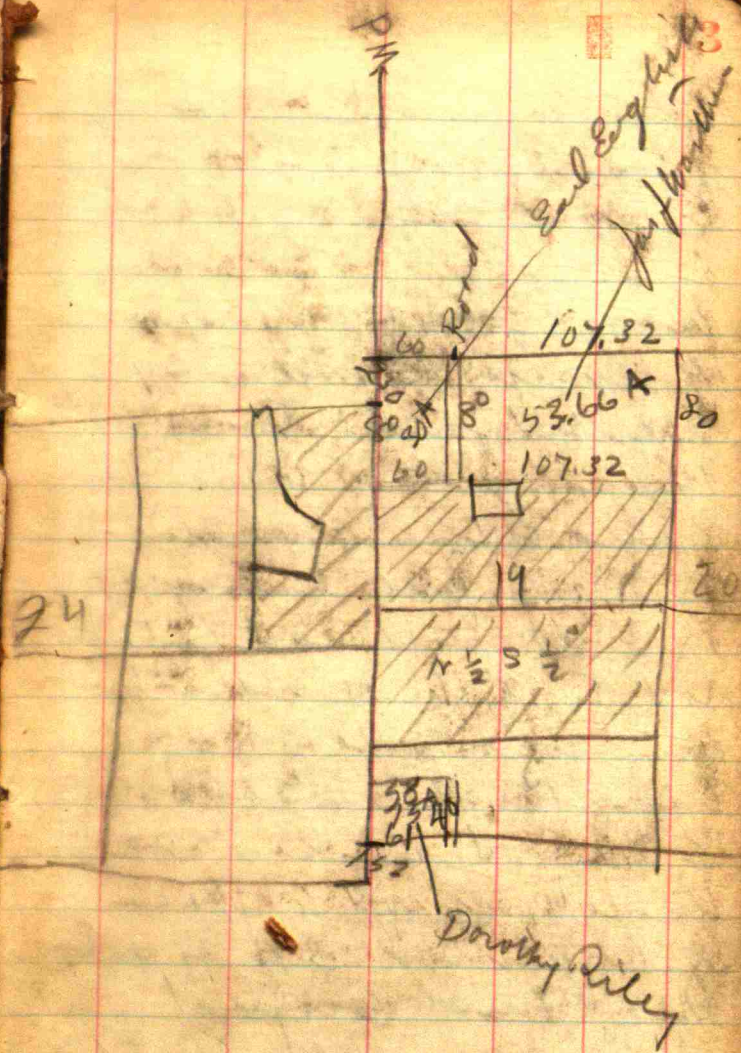 3
PM
Earl English
Road
60
107.32
80
53.66 A
80
60
107.32
19
20
24
N ½ S ½
Dorothy Riley